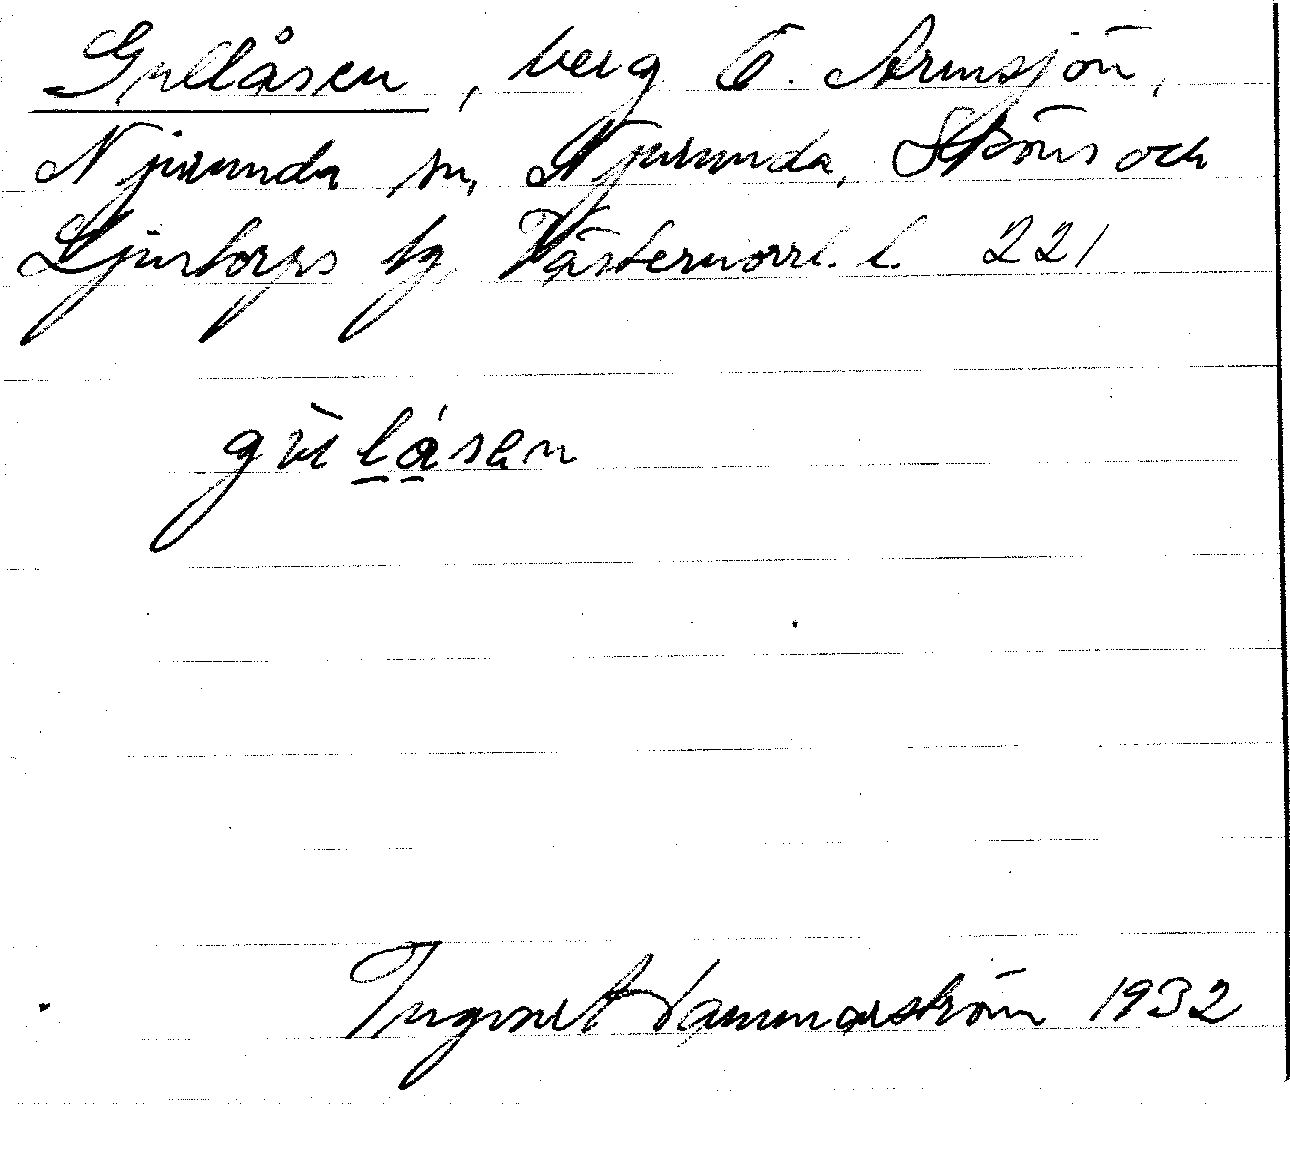 Gullåsen, berg Ö. Armsjön,
Njurunda sn, Njurunda, Sköns och
Ljustorps tg Västernorrl. l. 221
gùlåsen
Ingvar Hammarström 1932